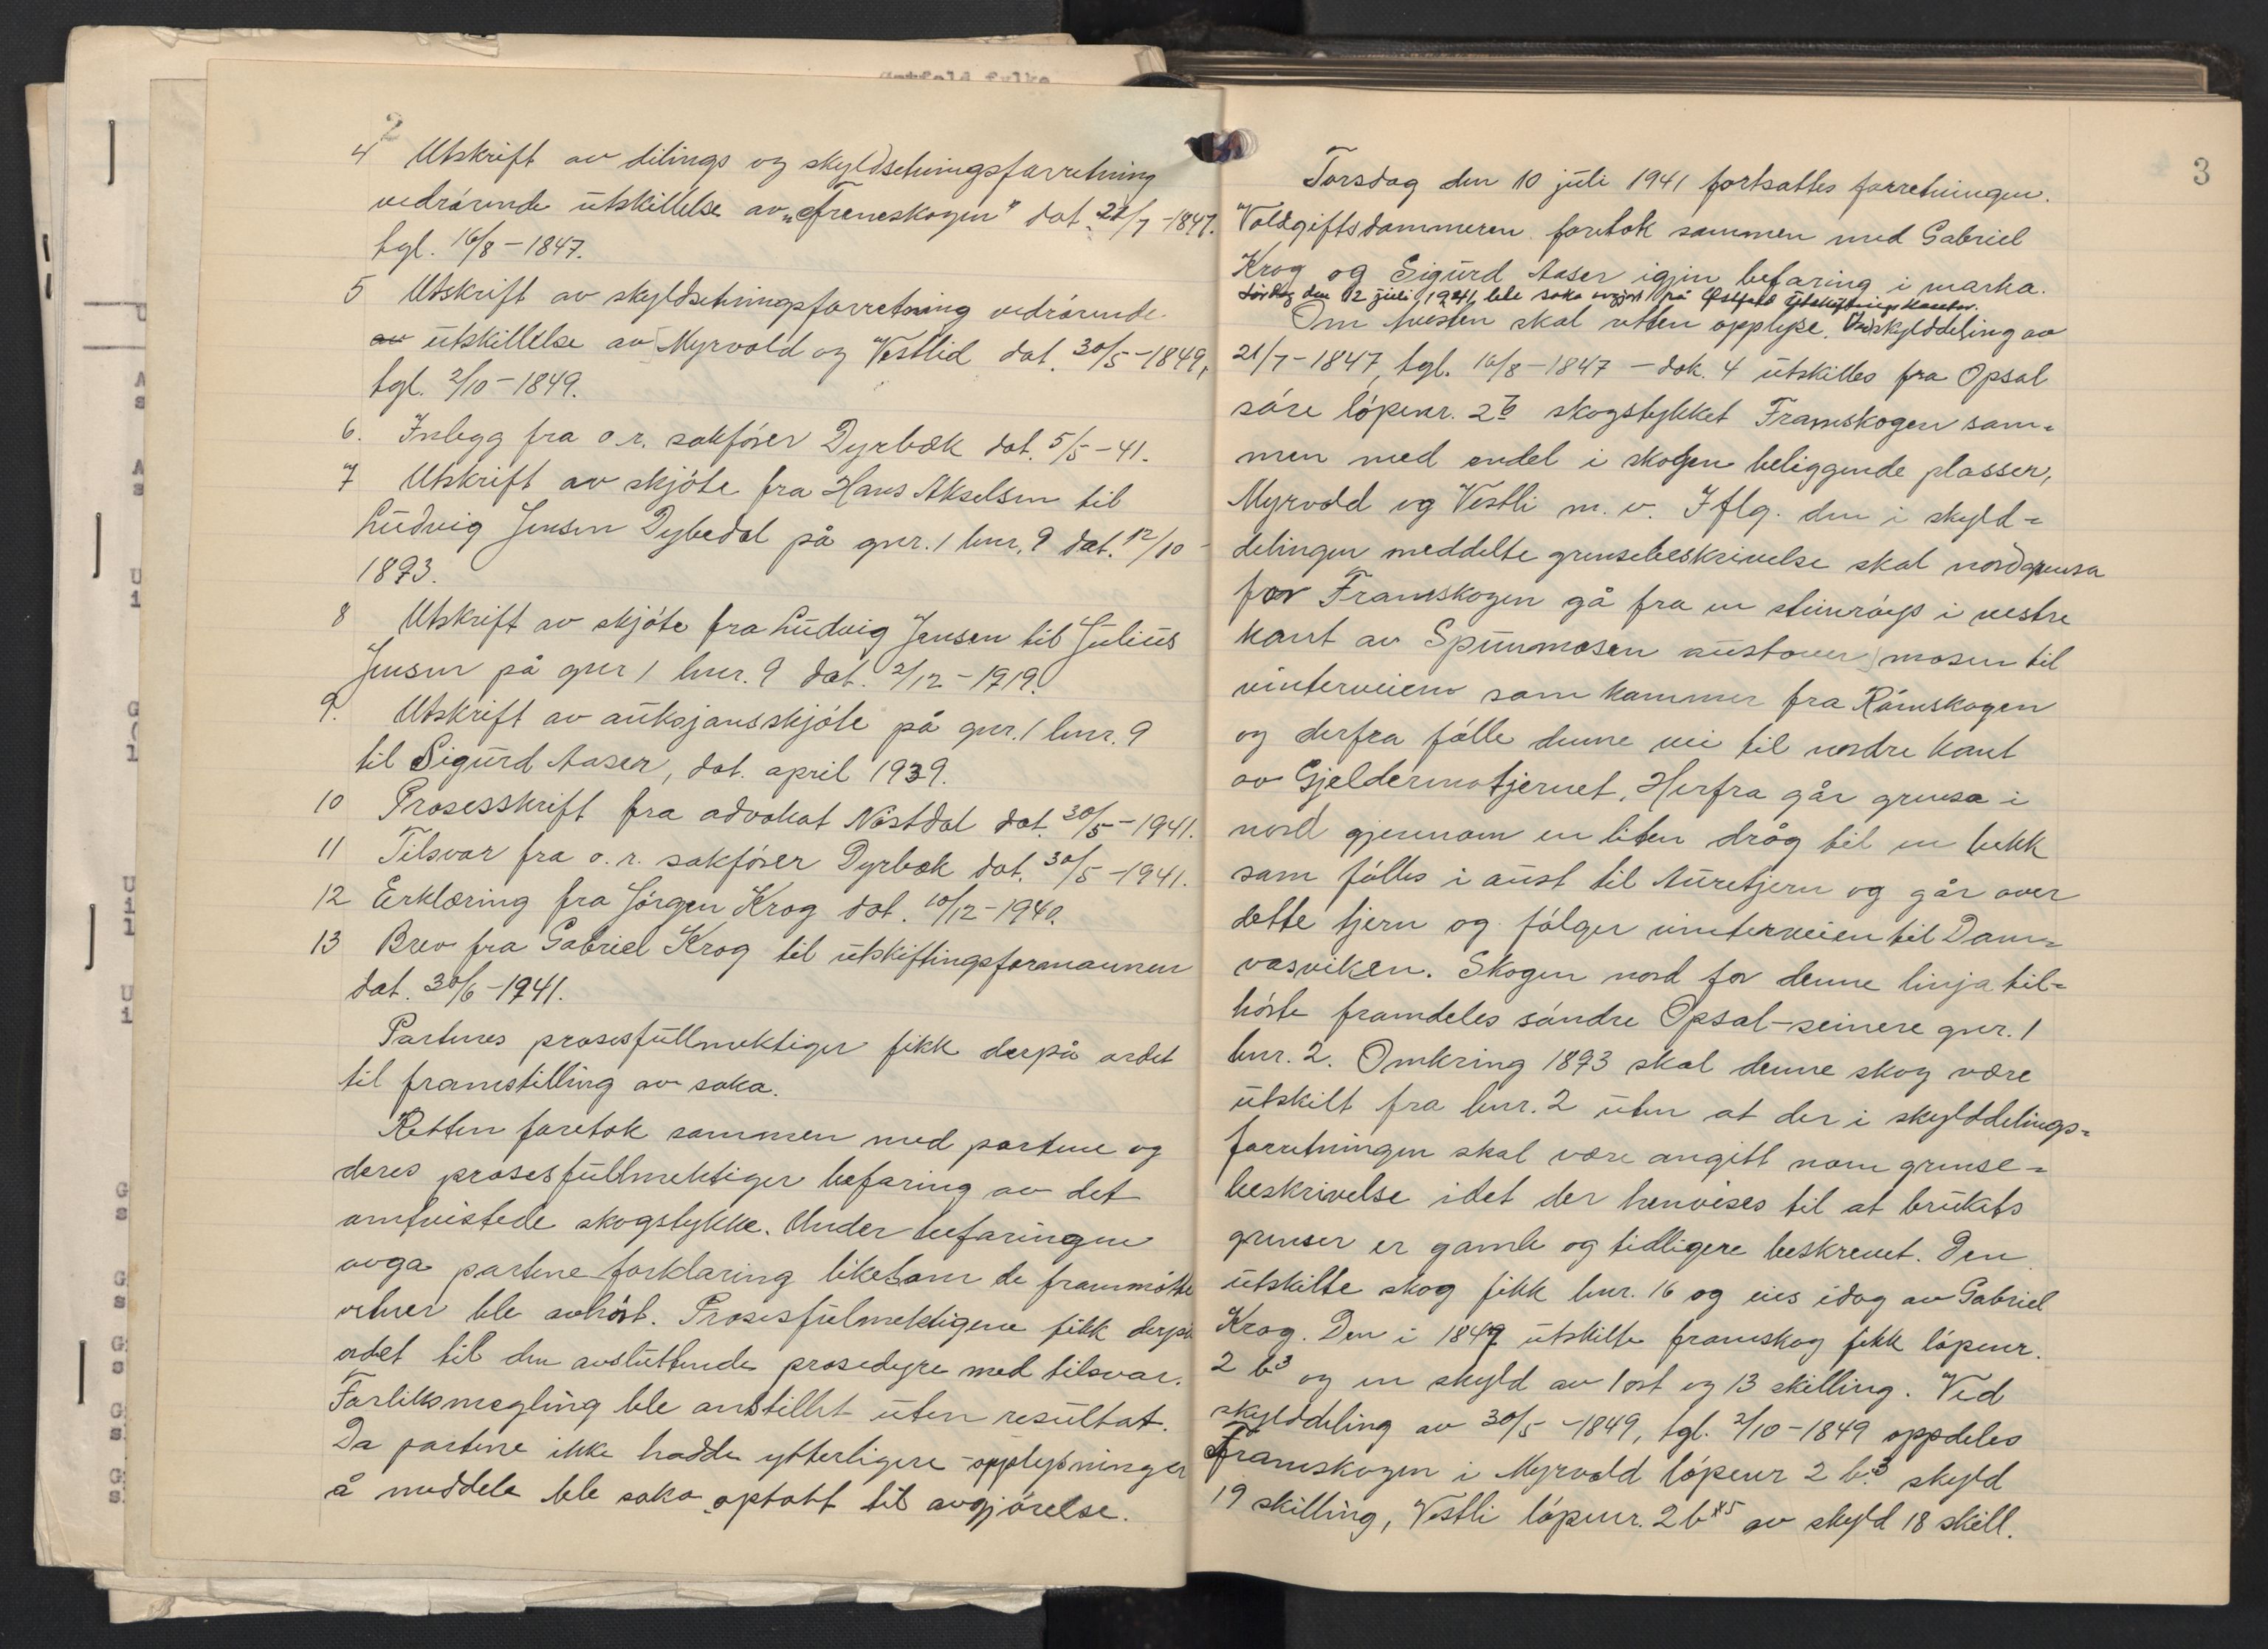 Østfold fylke
2
4 Utskrift av delings og skyldsetningsforretning
vedrørende utskillelse av „Freneskogen" dat. 21/7-1847.
tgl. 16/8-1847.
5 Utskrift av skyldsetningsforretning vedrørende
av utskillelse av Myrvold og Vestlid dat. 30/5-1849,
tgl. 2/10-1849.
6. Inlegg fra o.r. sakfører Dyrbæk dat. 5/5-41.
7 Utskrift av skjøte fra Hans Akselsen til
Ludvig Jensen Dybedal på gnr. 1 bnr. 9 dat. 12/10-
1893.
8 Utskrift av skjøte fra Ludvig Jensen til Julius
Jensen på gnr 1 bnr. 9 dat. 2/12-1919.
9. Utskrift av auksjonsskjøte på gnr. 1 bnr. 9
til Sigurd Aaser, dat. april 1939.
10 Prosesskrift fra advokat Nøstdal dat. 30/5-1941.
11 Tilsvar fra o.r. sakfører Dyrbæk dat. 30/5-1941.
12 Erklæring fra Jørgen Krog dat. 10/12-1940.
13 Brev fra Gabriel Krog til utskiftingsformannen
dat. 30/6-1941.
Partenes prosesfullmektiger fikk derpå ordet
til framstilling av saka.
Retten foretok sammen med partene og
deres prosesfullmektiger befaring av det
omtvistede skogstykke. Under befaringen
avga partene forklaring likesom de frammøtte
vitner ble avhørt. Prosesfulmektigene fikk derpå
ordet til den avsluttende prosedyre med tilsvar.
Forliksmegling ble anstillet uten resultat.
Da partene ikke hadde ytterligere opplysninger
å meddele ble saka optatt til avgjørelse.
3
Torsdag den 10 juli 1941 fortsattes forretningen.
Voldgiftsdommeren foretok sammen med Gabriel
Krog og Sigurd Aaser igjen befaring i marka.
Lørdag den 12 juli 1941 ble saka avgjort på Østfold Utskiftningskontor.
Om tvisten skal retten opplyse. Ved skylddeling av
21/7-1847, tgl. 16/8-1847 - dok. 4 utskilles fra Opsal
søre løpenr. 2b skogstykket Framskogen sam=
men med endel i skogen beliggende plasser,
Myrvold og Vestli m. v. Iflg. den i skyld=
delingen meddelte grensebeskrivelse skal nordgrensa
for Framskogen gå fra en steinrøys i vestre
kant av Spunmosen austover mosen til
vinterveien som kommer fra Rømskogen
og derfra følle denne vei til nordre kant
av Gjeldermotjernet. Herfra går grensa i
nord gjennom en liten dråg til en bekk
som følles i aust til Auretjern og går over
dette tjern og følger vinterveien til Dam=
vasviken. Skogen nord for denne linja til=
hørte framdeles søndre Opsal-seinere gnr. 1
bnr. 2. Omkring 1893 skal denne skog være
utskilt fra bnr. 2 uten at der i skylddelings=
forretningen skal være angitt noen grense=
beskrivelse idet der henvises til at brukets
grenser er gamle og tidligere beskrevet. Den
utskilte skog fikk bnr. 16 og eies idag av Gabriel
Krog. Den i 1847 utskilte framskog fikk løpenr.
2 b3 og en skyld av 1 ort og 13 skilling. Ved
skylddeling av 30/5-1849, tgl. 2/10-1849 oppdeles
Framskogen i Myrvold løpenr 2 b.3 skyld
19 skilling, Vestli løpenr. 2 b av skyld 18 skill.